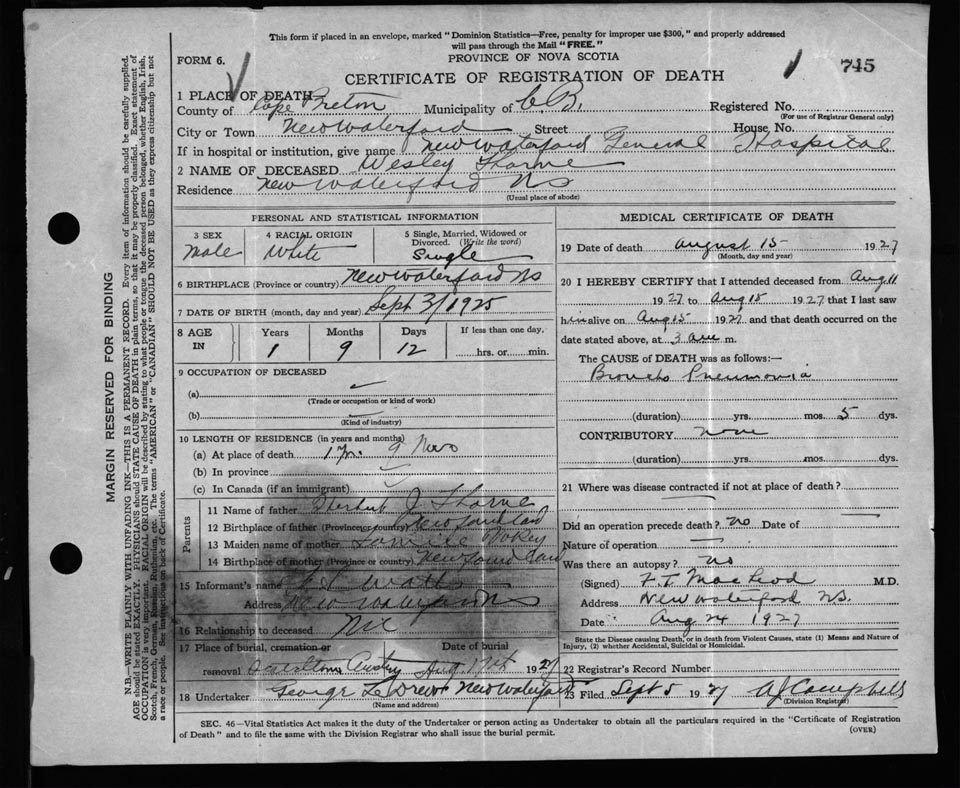 This form if placed in an envelope, marked "Dominion Statistics—Free, penalty for improper use $300," and properly addressed
will pass through the Mail "FREE."
PROVINCE OF NOVA SCOTIA
FORM 6.
CERTIFICATE OF REGISTRATION OF DEATH
745
1 PLACE OF DEATH
County of Cape Breton Municipality of C.B. Registered No.
(For use of Registrar General only)
City or Town New Waterford Street House No.
If in hospital or institution, give name New Waterford General Hospital
2 NAME OF DECEASED Wesley Thorne
Residence New Waterford NS
(Usual place of abode)
PERSONAL AND STATISTICAL INFORMATION
3 SEX 4 RACIAL ORIGIN 5 Single, Married, Widowed or Divorced. (Write the word)
Male White Single
6 BIRTHPLACE (Province or country) New Waterford NS
7 DATE OF BIRTH (month, day and year) Sept 3/1925
8 AGE IN Years Months Days If less than one day.
1 9 12 hrs. or min.
9 OCCUPATION OF DECEASED
(a)
(Trade or occupation or kind of work)
(b)
(Kind of industry)
10 LENGTH OF RESIDENCE (in years and months)
(a) At place of death 1 yr. 9 mos
(b) In province
(c) In Canada (if an immigrant)
Parents
11 Name of father J Thorne
12 Birthplace of father (Province or country) Newfoundland
13 Maiden name of mother
14 Birthplace of mother (Province or country) Newfoundland
15 Informant's name
Address New Waterford NS
16 Relationship to deceased Nil
17 Place of burial, cremation or Date of burial
removal Aug 17th 1927
18 Undertaker George New Waterford
(Name and address)
MEDICAL CERTIFICATE OF DEATH
19 Date of death August 15 1927
(Month, day and year)
20 I HEREBY CERTIFY that I attended deceased from Aug 11
1927 to Aug 15 1927 that I last saw
him alive on Aug 15 1927 and that death occurred on the
date stated above, at 3 am m.
The CAUSE OF DEATH was as follows:—
Broncho Pneumonia
(duration) yrs. mos. 5 dys.
CONTRIBUTORY none
(duration) yrs. mos. dys.
21 Where was disease contracted if not at place of death?
Did an operation precede death? no Date of
Nature of operation
Was there an autopsy? no
(Signed) MacLeod M.D.
Address New Waterford NS.
Date Aug 24 1927
State the Disease causing Death, or in death from Violent Causes, state (1) Means and Nature of
Injury, (2) whether Accidental, Suicidal or Homicidal.
22 Registrar's Record Number
23 Filed Sept 5 1927 AJ Campbell
(Division Registrar)
SEC. 46—Vital Statistics Act makes it the duty of the Undertaker or person acting as Undertaker to obtain all the particulars required in the "Certificate of Registration
of Death" and to file the same with the Division Registrar who shall issue the burial permit.
(OVER)
MARGIN RESERVED FOR BINDING
N.B.—WRITE PLAINLY WITH UNFADING INK—THIS IS A PERMANENT RECORD. Every item of information should be carefully supplied.
AGE should be stated EXACTLY. PHYSICIANS should STATE CAUSE OF DEATH in plain terms, so that it may be properly classified. Exact statement of
OCCUPATION is very important. RACIAL ORIGIN will be described by stating to what people or tongue the deceased person belonged, whether English, Irish,
Scotch, French, German, Russian, Ruthenian, etc. The terms "AMERICAN" or "CANADIAN" SHOULD NOT BE USED as they express citizenship but not
a race or people. See instructions on back of Certificate.